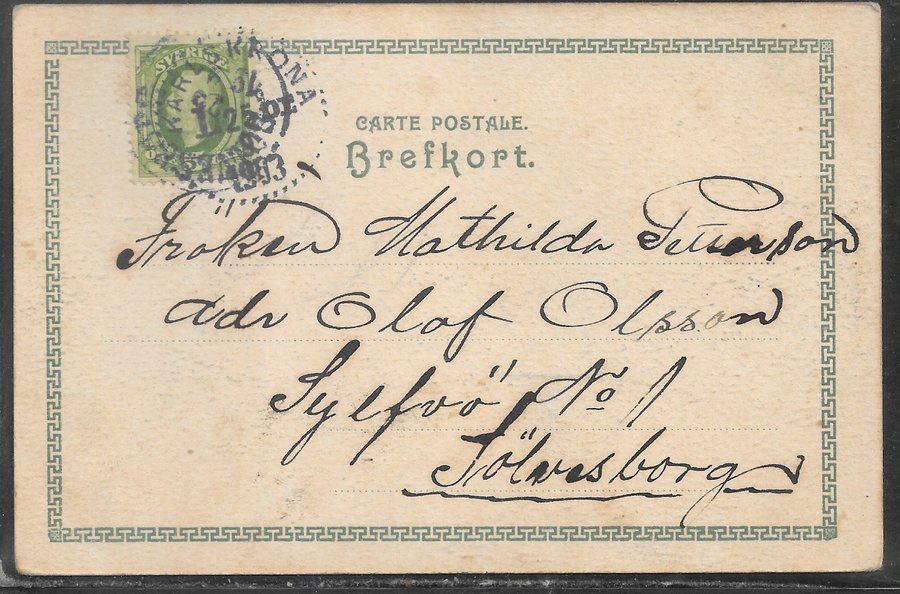 SVERIGE
KARLSKRONA
1903
CARTE POSTALE.
Brefkort.
Fröken Mathilda Petterson
adr Olof Olsson
Sylfvö No 1
Sölvesborg